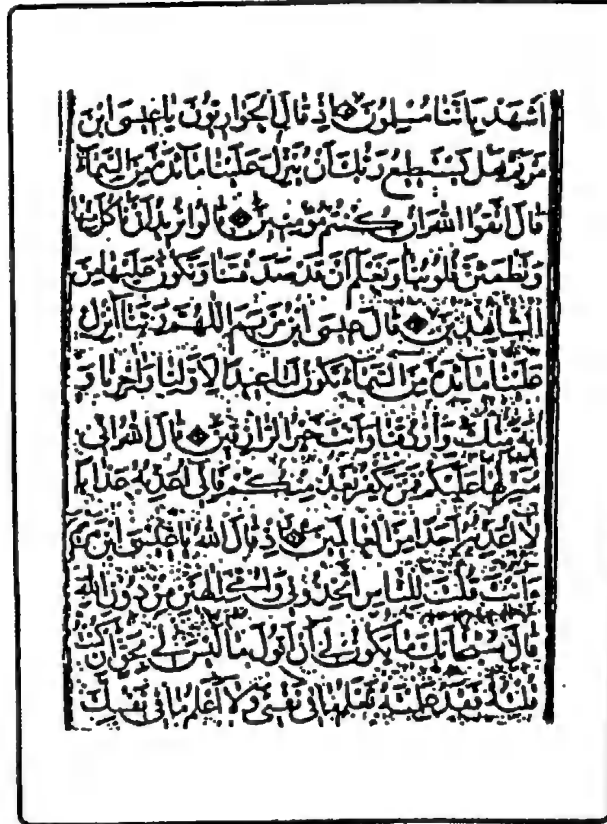 اشهد باننا مسلمون اذ قال الحواريون يا عيسى ابن
مريم هل يستطيع ربك ان ينزل علينا مائدة من السماء
قال اتقوا الله ان كنتم مؤمنين قالوا نريد ان ناكل منها
وتطمئن قلوبنا ونعلم ان قد صدقتنا ونكون عليها من
الشاهدين قال عيسى ابن مريم اللهم ربنا انزل
علينا مائدة من السماء تكون لنا عيدا لاولنا واخرنا و
اية منك وارزقنا وانت خير الرازقين قال الله انى
منزلها عليكم فمن يكفر بعد منكم فانى اعذبه عذابا
لا اعذبه احدا من العالمين واذ قال الله يا عيسى ابن مريم
ءانت قلت للناس اتخذونى وامى الهين من دون الله
قال سبحانك ما يكون لى ان اقول ما ليس لى بحق ان كنت
قلته فقد علمته تعلم ما فى نفسى ولا اعلم ما فى نفسك